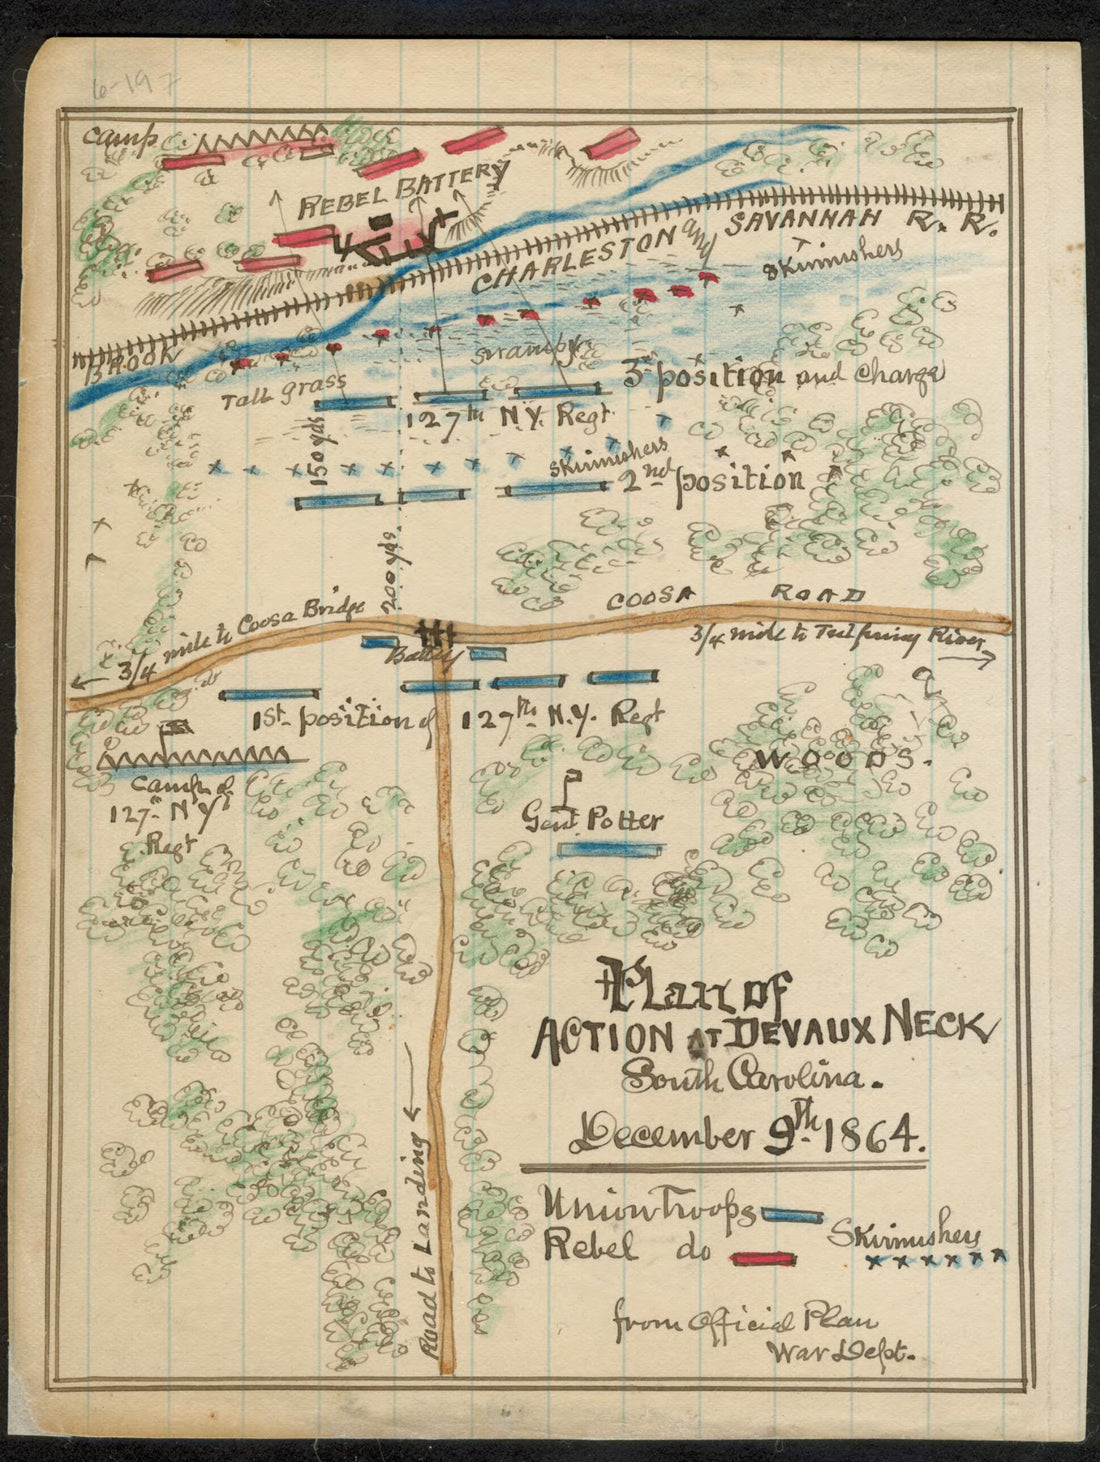 6-197
camp
REBEL BATTERY
CHARLESTON and SAVANNAH R. R.
Skirmishers
BROOK
Tall grass
swamp
3d position and charge
127th N.Y. Regt
150 yds
Skirmishers
2nd position
200 yds.
COOSA ROAD
3/4 mile to Coosa Bridge
Battery
1st position of 127th N.Y. Regt
WOODS.
Camp of
127th N Y
Regt
Genl Potter
Plan of
ACTION AT DEVAUX NECK
South Carolina.
December 9th 1864.
Union Troops
Rebel do
Skirmishers
Road to Landing
from Official Plan
War Dept.